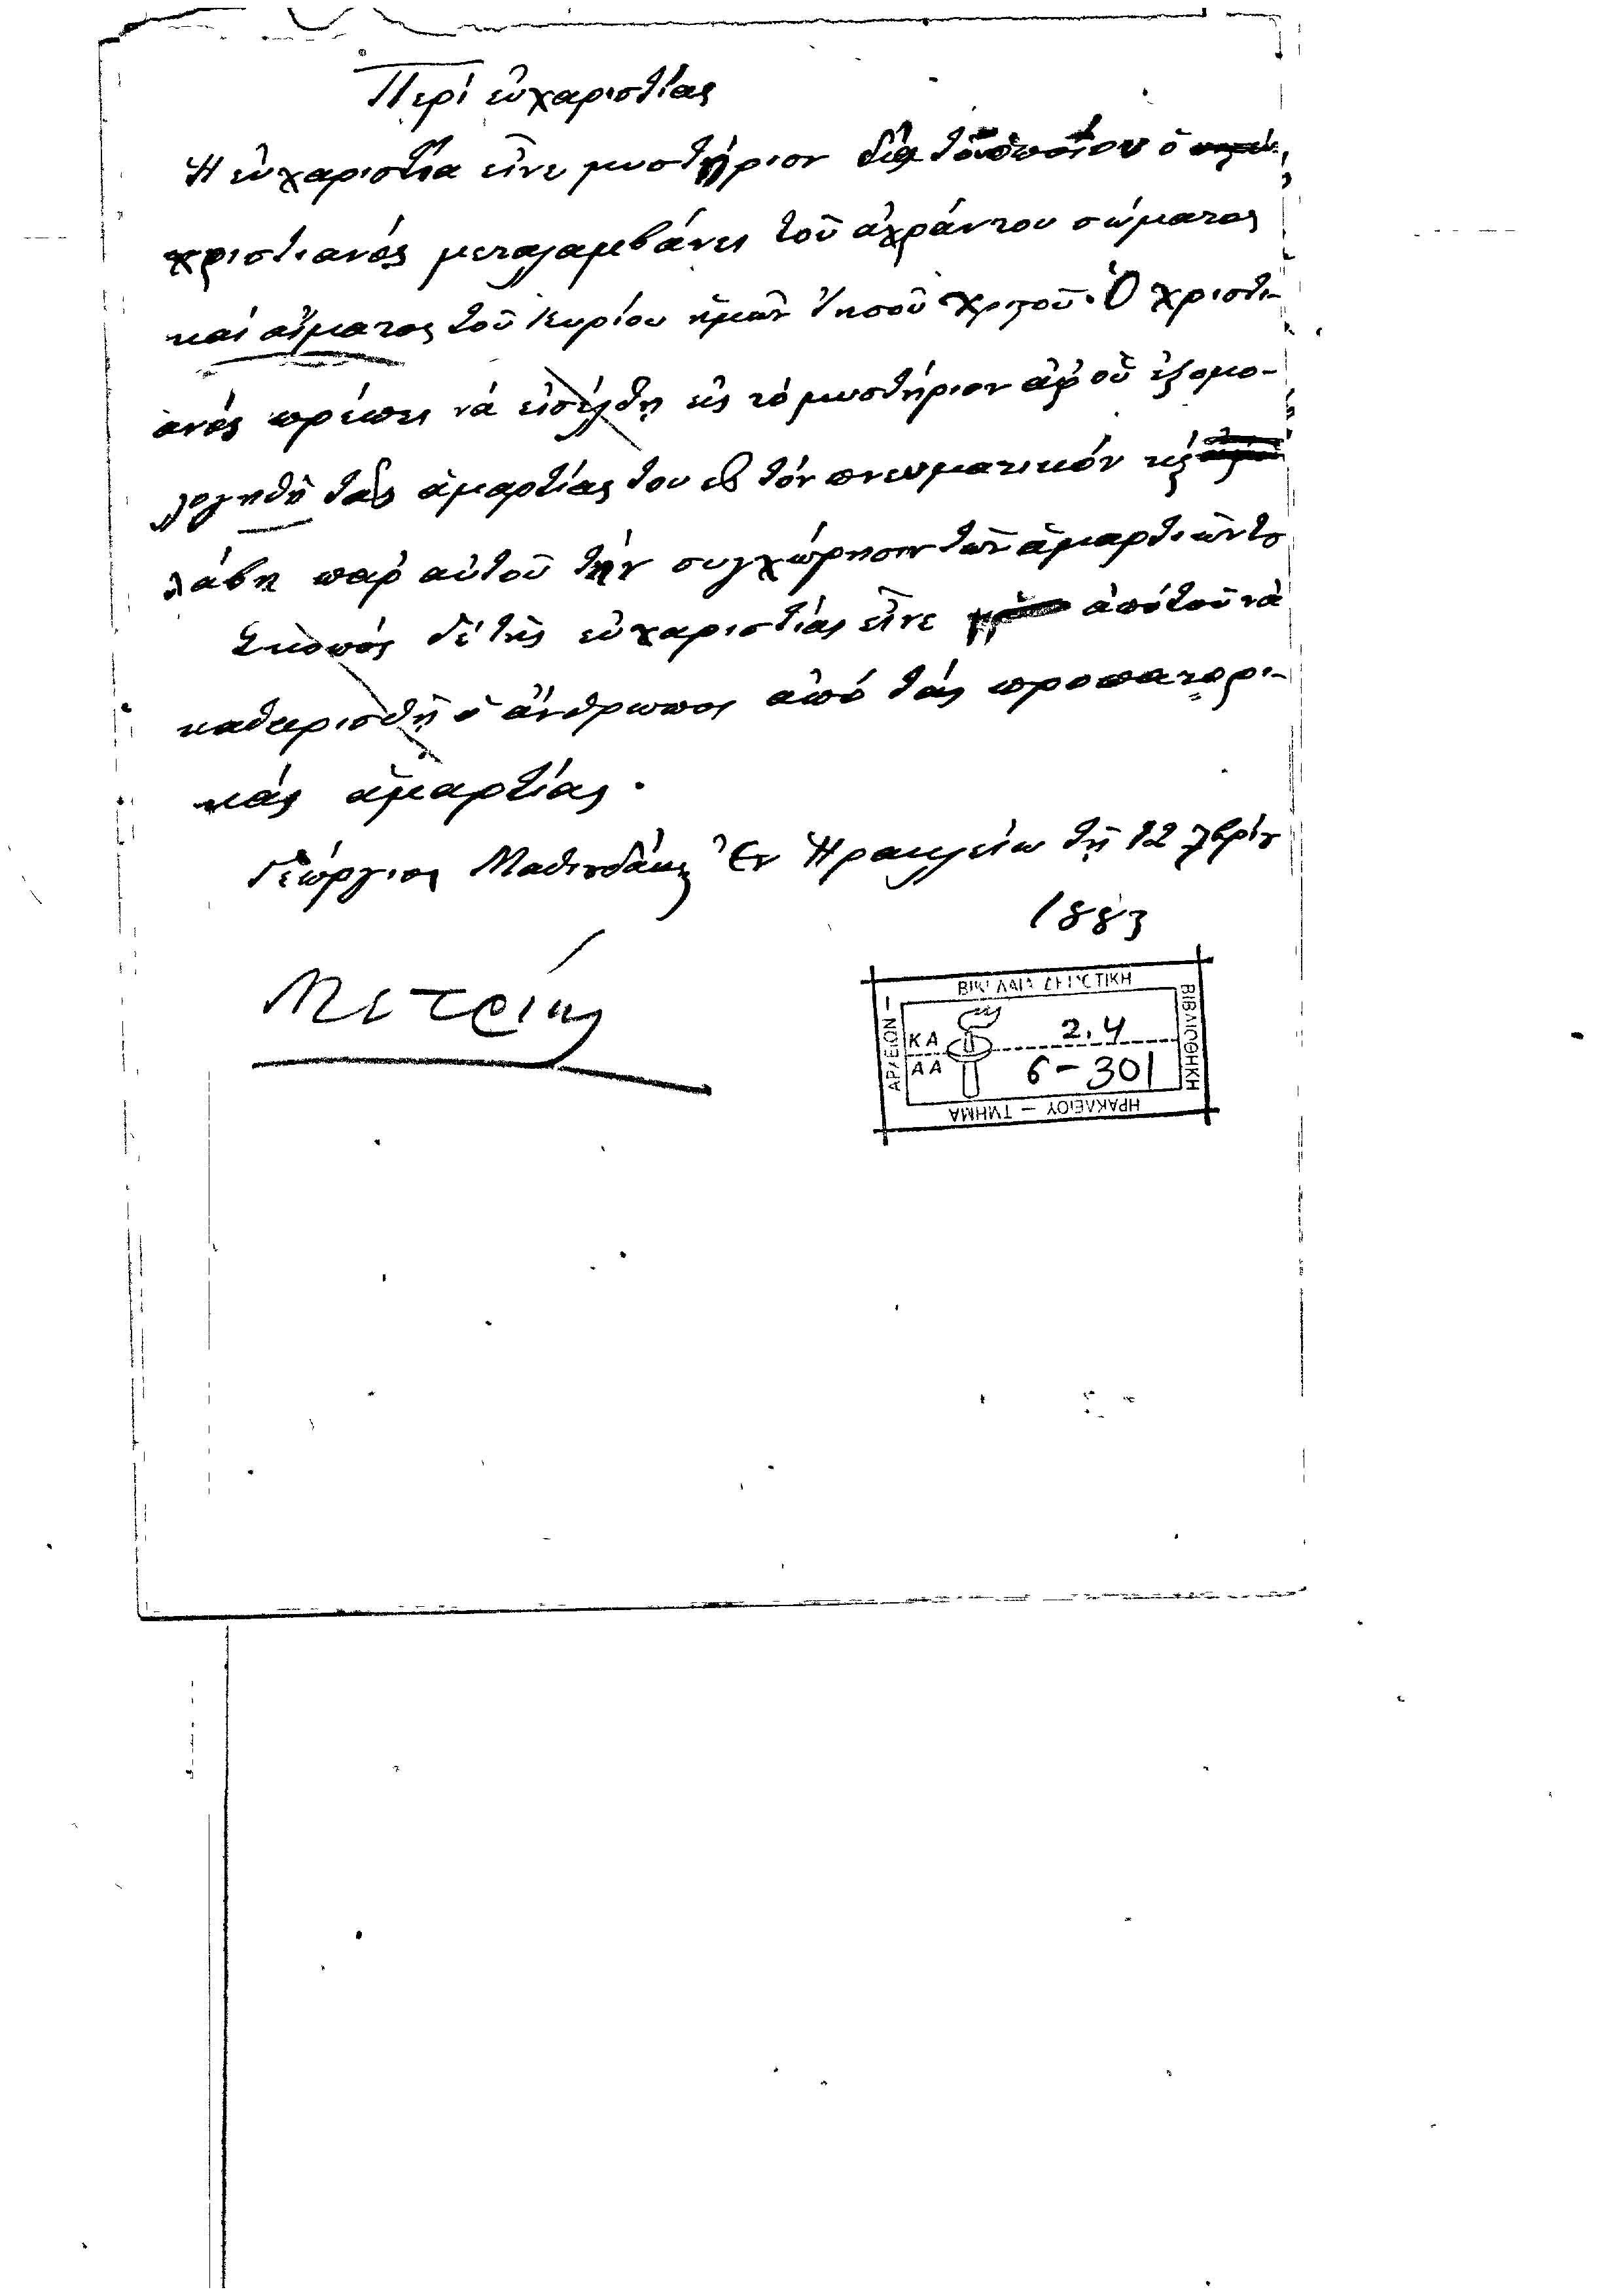 Περί εὐχαριστίας
Ἡ εὐχαριστία εἶνε μυστήριον διά τοῦ ὁποίου ὁ
χριστιανός μεταλαμβάνει τοῦ ἀχράντου σώματος
καί αἵματος τοῦ Κυρίου ἡμῶν Ἰησοῦ Χριστοῦ. Ὁ χριστι-
ανός πρέπει νά εἰσέλθῃ εἰς τό μυστήριον ἀφ οὗ ἐξομο-
λογηθῇ τάς ἁμαρτίας του εἰς τόν πνευματικόν κ
λάβῃ παρ αὐτοῦ τήν συγχώρησιν τῶν ἁμαρτιῶν του
Σκοπός δέ τῆς εὐχαριστίας εἶνε ἀπό τοῦ νά
καθαρισθῇ ὁ ἄνθρωπος ἀπό τάς προπατορι-
κάς ἁμαρτίας.
Γεώργιος Ἐν Ἡρακλείῳ τῇ 12
1883
Μετρίως
ΒΙΚΕΛΑΙΑ ΔΗΜΟΤΙΚΗ
ΒΙΒΛΙΟΘΗΚΗ
ΗΡΑΚΛΕΙΟΥ — ΤΜΗΜΑ
ΑΡΧΕΙΩΝ —
ΚΑ 2.4
ΑΑ 6-301